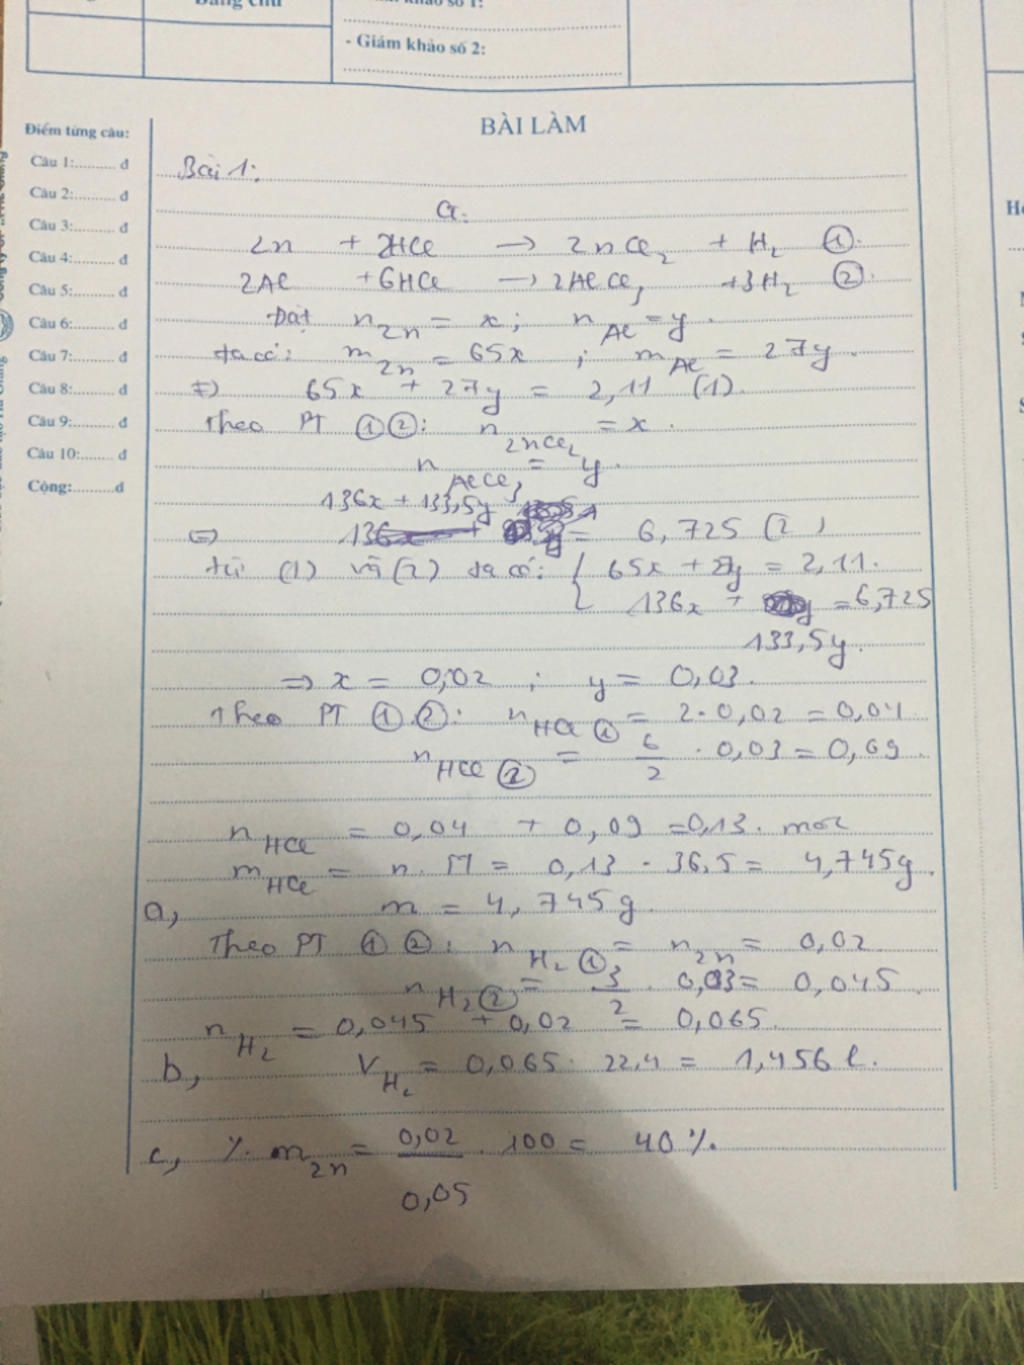 - Giám khảo số 2:
BÀI LÀM
Điểm từng câu:
Câu 1:.......... đ
Câu 2:.......... đ
Câu 3:.......... đ
Câu 4:.......... đ
Câu 5:.......... đ
Câu 6:.......... đ
Câu 7:.......... đ
Câu 8:.......... đ
Câu 9:.......... đ
Câu 10:........ đ
Cộng:..........đ
Bài 1:
a.
Zn + 2HCl → ZnCl₂ + H₂ ①.
2Al + 6HCl → 2AlCl₃ + 3H₂ ②.
Đặt n Zn = x; n Al = y.
ta có: m Zn = 65x ; m Al = 27y.
65x + 27y = 2,11 (1).
Theo PT ①②: n ZnCl₂ = x.
n AlCl₃ = y.
136x + 133,5y = 6,725 (2)
từ (1) và (2) ta có: { 65x + 27y = 2,11.
136x + 133,5y. = 6,725
⇒ x = 0,02 ; y = 0,03.
Theo PT ① ②: n HCl ① = 2.0,02 = 0,04.
n HCl ② = 6/2 . 0,03 = 0,09.
n HCl = 0,04 + 0,09 = 0,13. mol
m HCl = n. M = 0,13 . 36,5 = 4,745g.
a, m = 4,745g.
Theo PT ① ②: n H₂ ① = n Zn = 0,02
n H₂ ② = 3/2 . 0,03 = 0,045.
n H₂ = 0,045 + 0,02 = 0,065.
b, V H₂ = 0,065. 22,4 = 1,456 l.
c, % m Zn = 0,02/0,05 . 100 = 40 %.